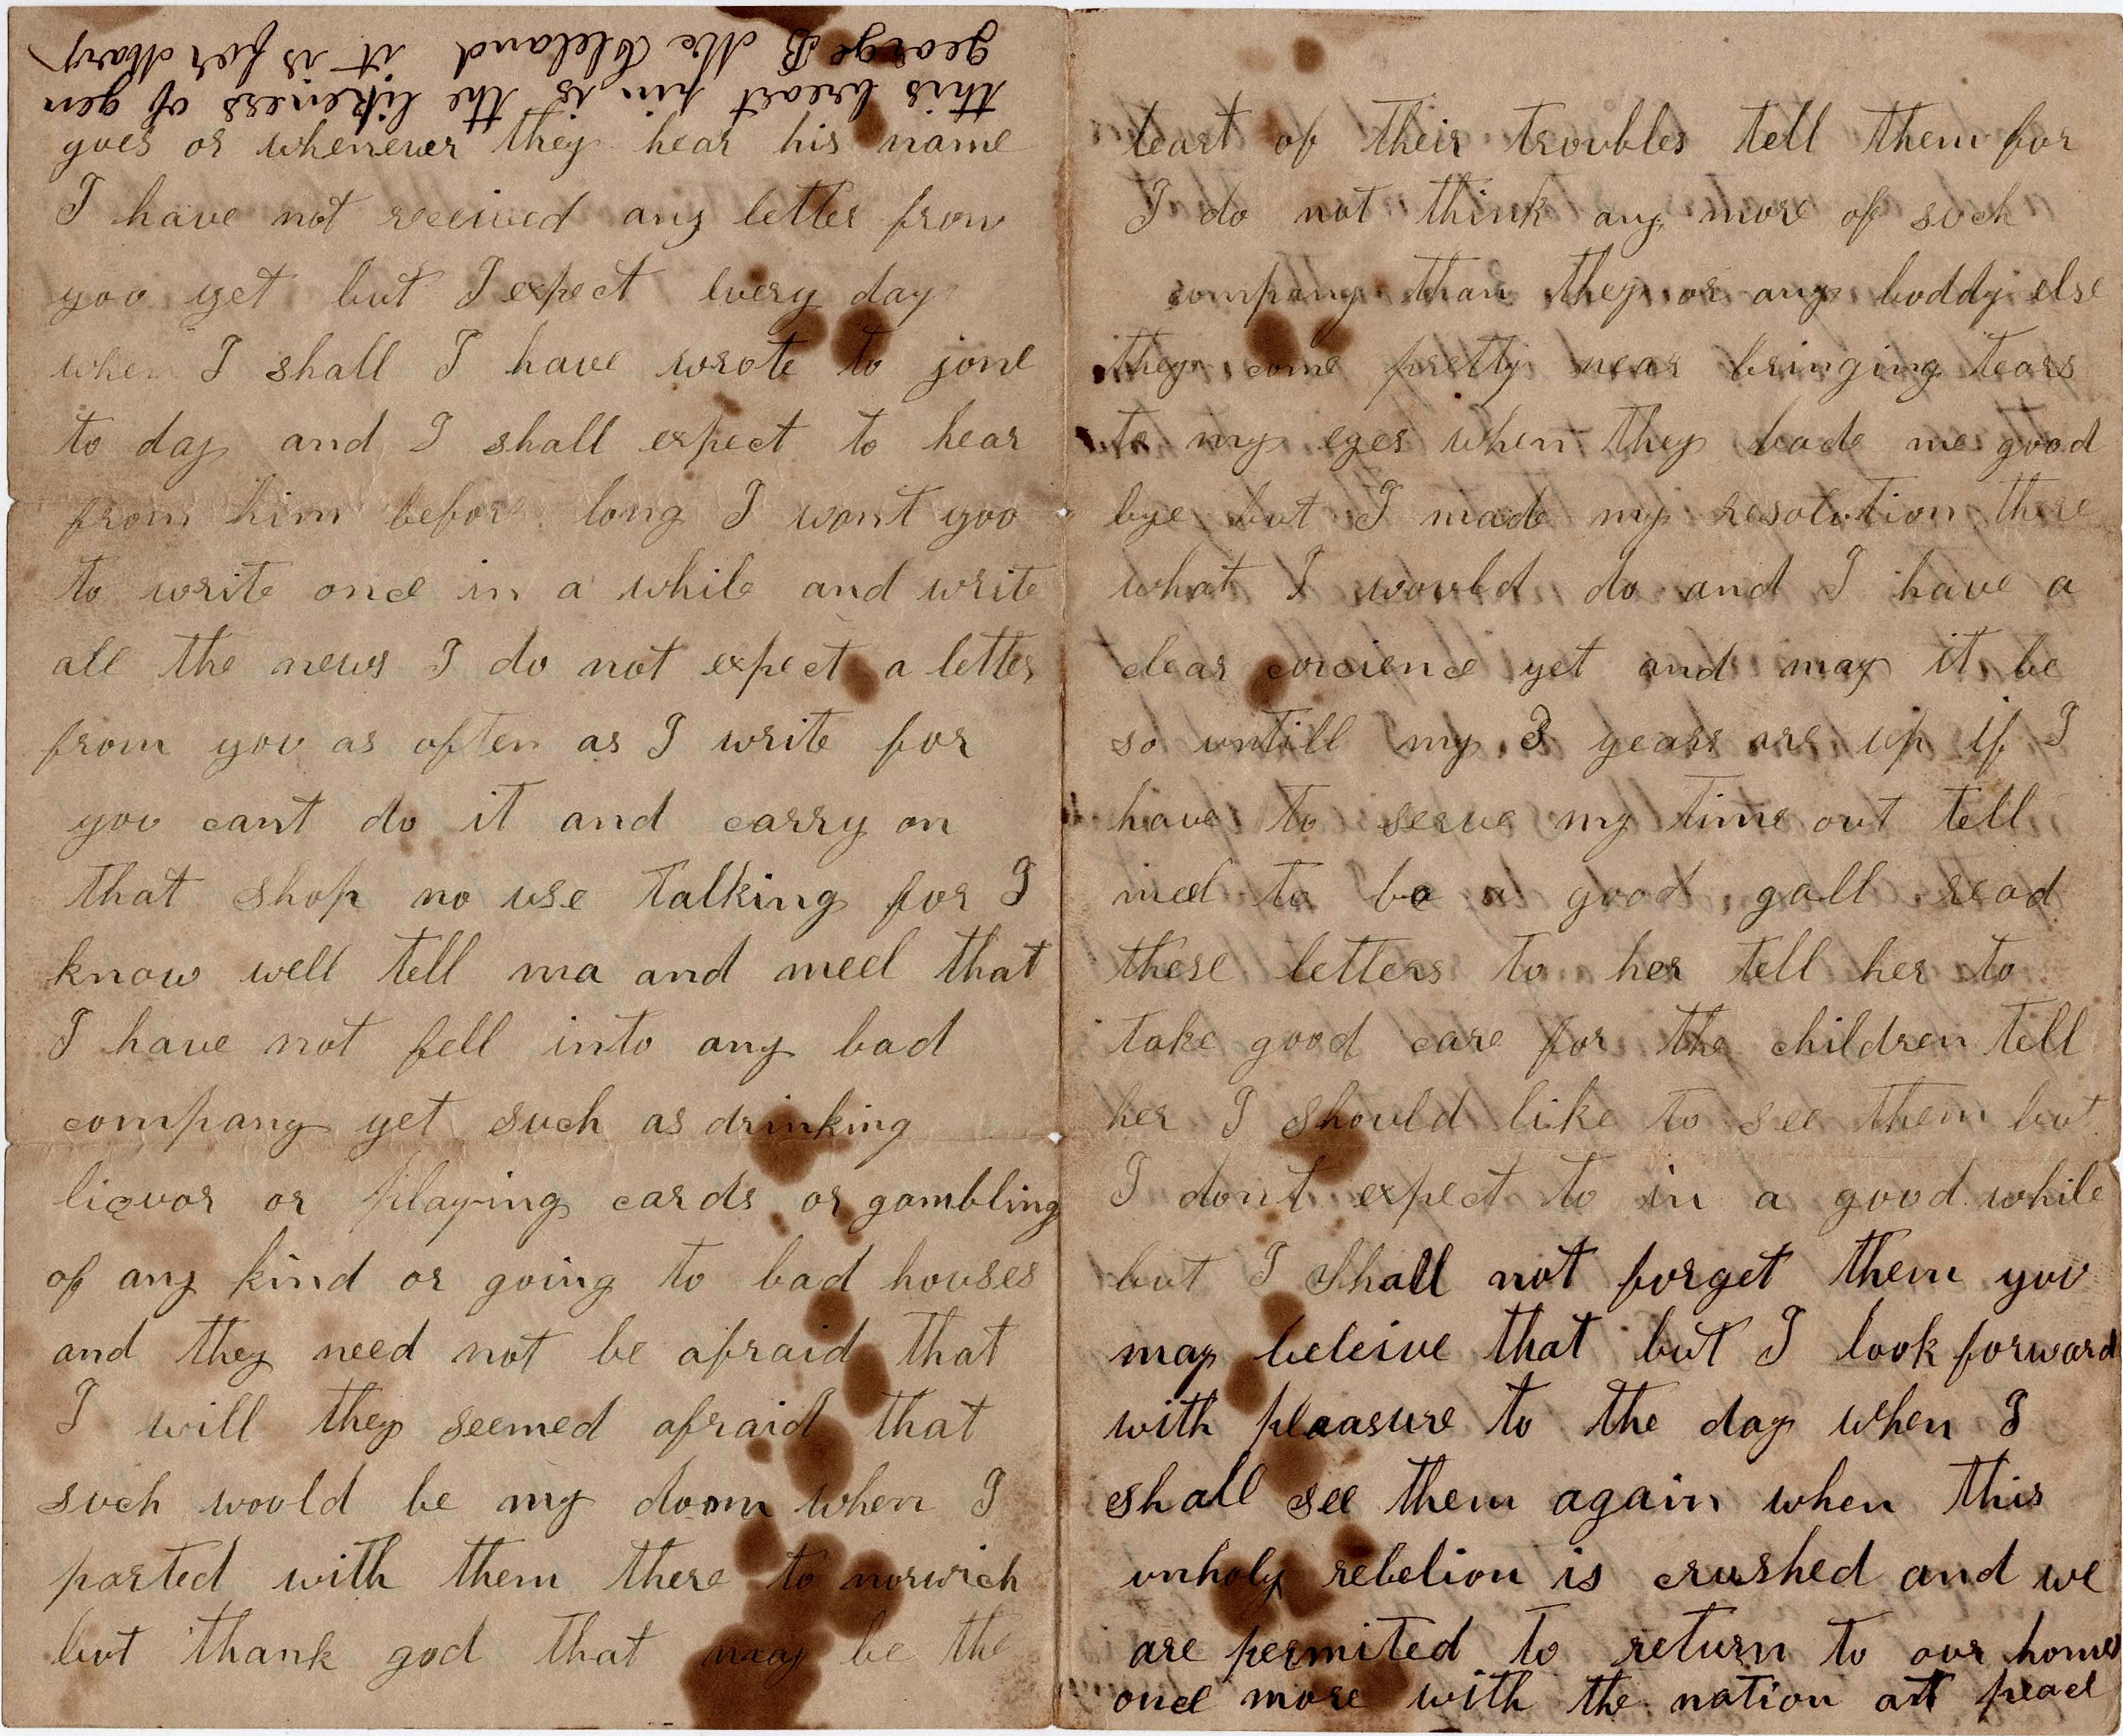 this breast pin is the likeness of gen
george B Mc Cleland it is for Mary
goes or whenever they hear his name
I have not received any letter from
you yet but I expect every day
when I shall I have wrote to jone
to day and I shall expect to hear
from him before long I want you
to write once in a while and write
all the news I do not expect a letter
from you as often as I write for
you cant do it and carry on
that shop no use talking for I
know well tell ma and meel that
I have not fell into any bad
company yet such as drinking
liquor or playing cards or gambling
of any kind or going to bad houses
and they need not be afraid that
I will they seemed afraid that
such would be my doom when I
parted with them there to norwich
but thank god that may be the
least of their troubles tell them for
I do not think any more of such
company than they or any boddy else
they come pretty near bringing tears
to my eyes when they bade me good
bye but I made my resolution there
what I would do and I have a
clear concience yet and may it be
so untill my 3 years are up if I
have to serve my time out tell
meel to be a good gall read
these letters to her tell her to
take good care for the children tell
her I should like to see them but
I dont expect to in a good while
but I shall not forget them you
may beleive that but I look forward
with pleasure to the day when I
shall see them again when this
unholy rebelion is crushed and we
are permited to return to our homes
once more with the nation at peace